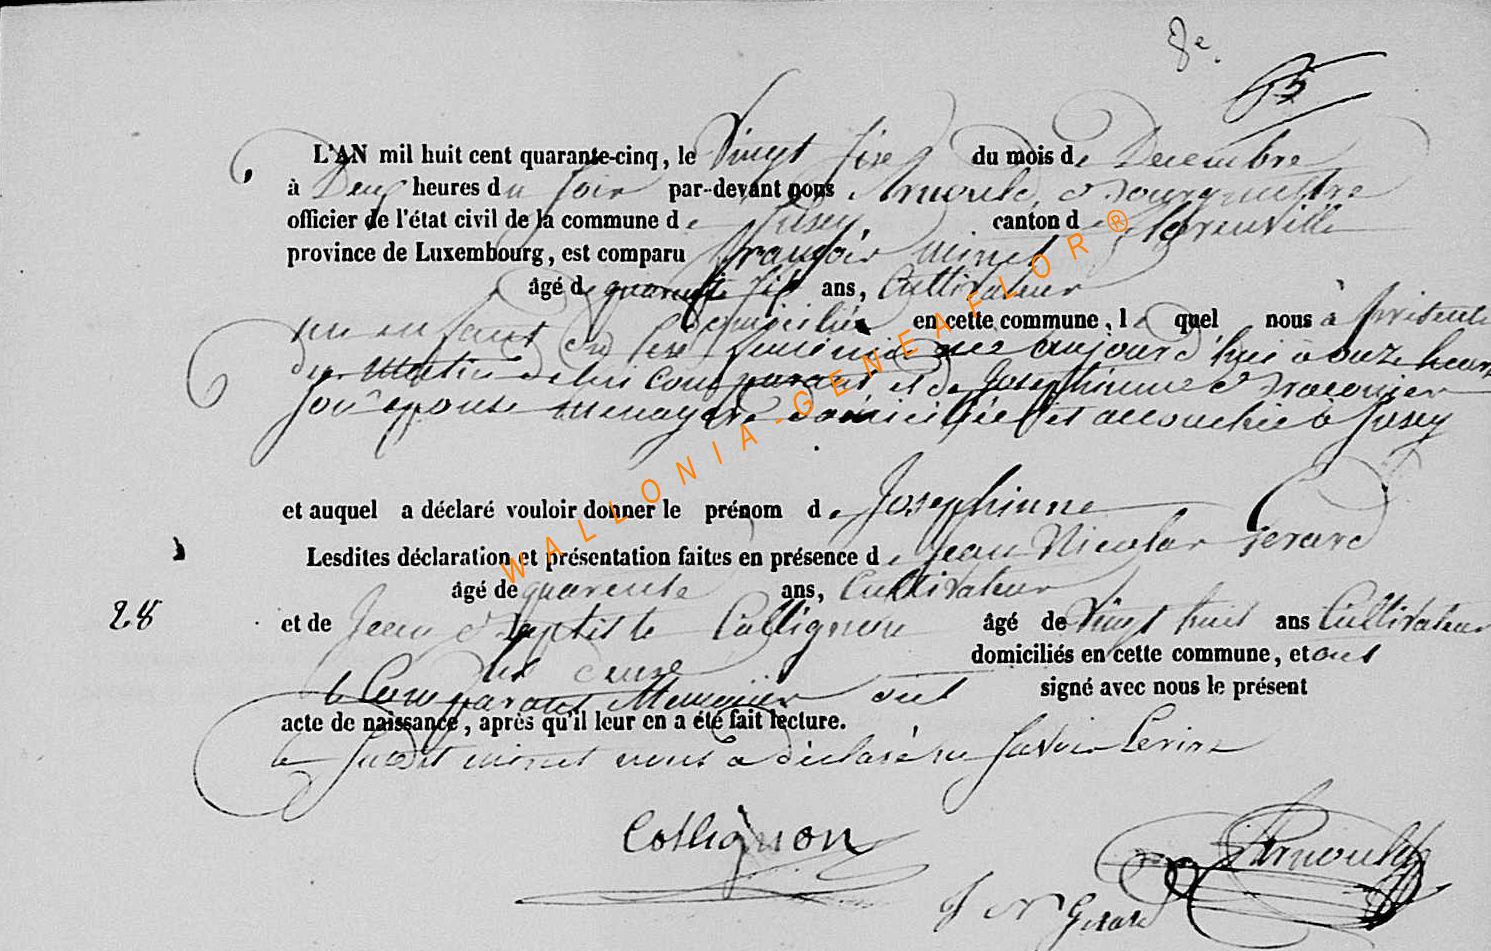 8e.
L'AN mil huit cent quarante-cinq, le Vingt Sixe du mois de Decembre
à Deux heures du Soir par-devant nous Arnould, Bourgumestre
officier de l'état civil de la commune de Jusey canton de Sibreuville
province de Luxembourg, est comparu François Minet
âgé de quarante six ans, Cultivateur
domicilié en cette commune, le quel nous à présenté
un enfant du sexe feminin née aujourd'hui à onze heures
du Matin de lui comparant et de Josephinne Draconier
son épouse menagere domiciliée et accouchée à Jusey
et auquel a déclaré vouloir donner le prénom de Josephinne
Lesdites déclaration et présentation faites en présence de Jean Nicolas Gerard
âgé de quarente ans, Cultivateur
28
et de Jean Baptiste Collignon âgé de Vingt huit ans Cultivateur
les deux domiciliés en cette commune, et ont
le Comparant ont signé avec nous le présent
acte de naissance, après qu'il leur en a été fait lecture.
le Sudit minet nous a déclaré ne Savoir Ecrire
Collignon
Arnould
J N Gerard
WALLONIA-GENEAFLOR®